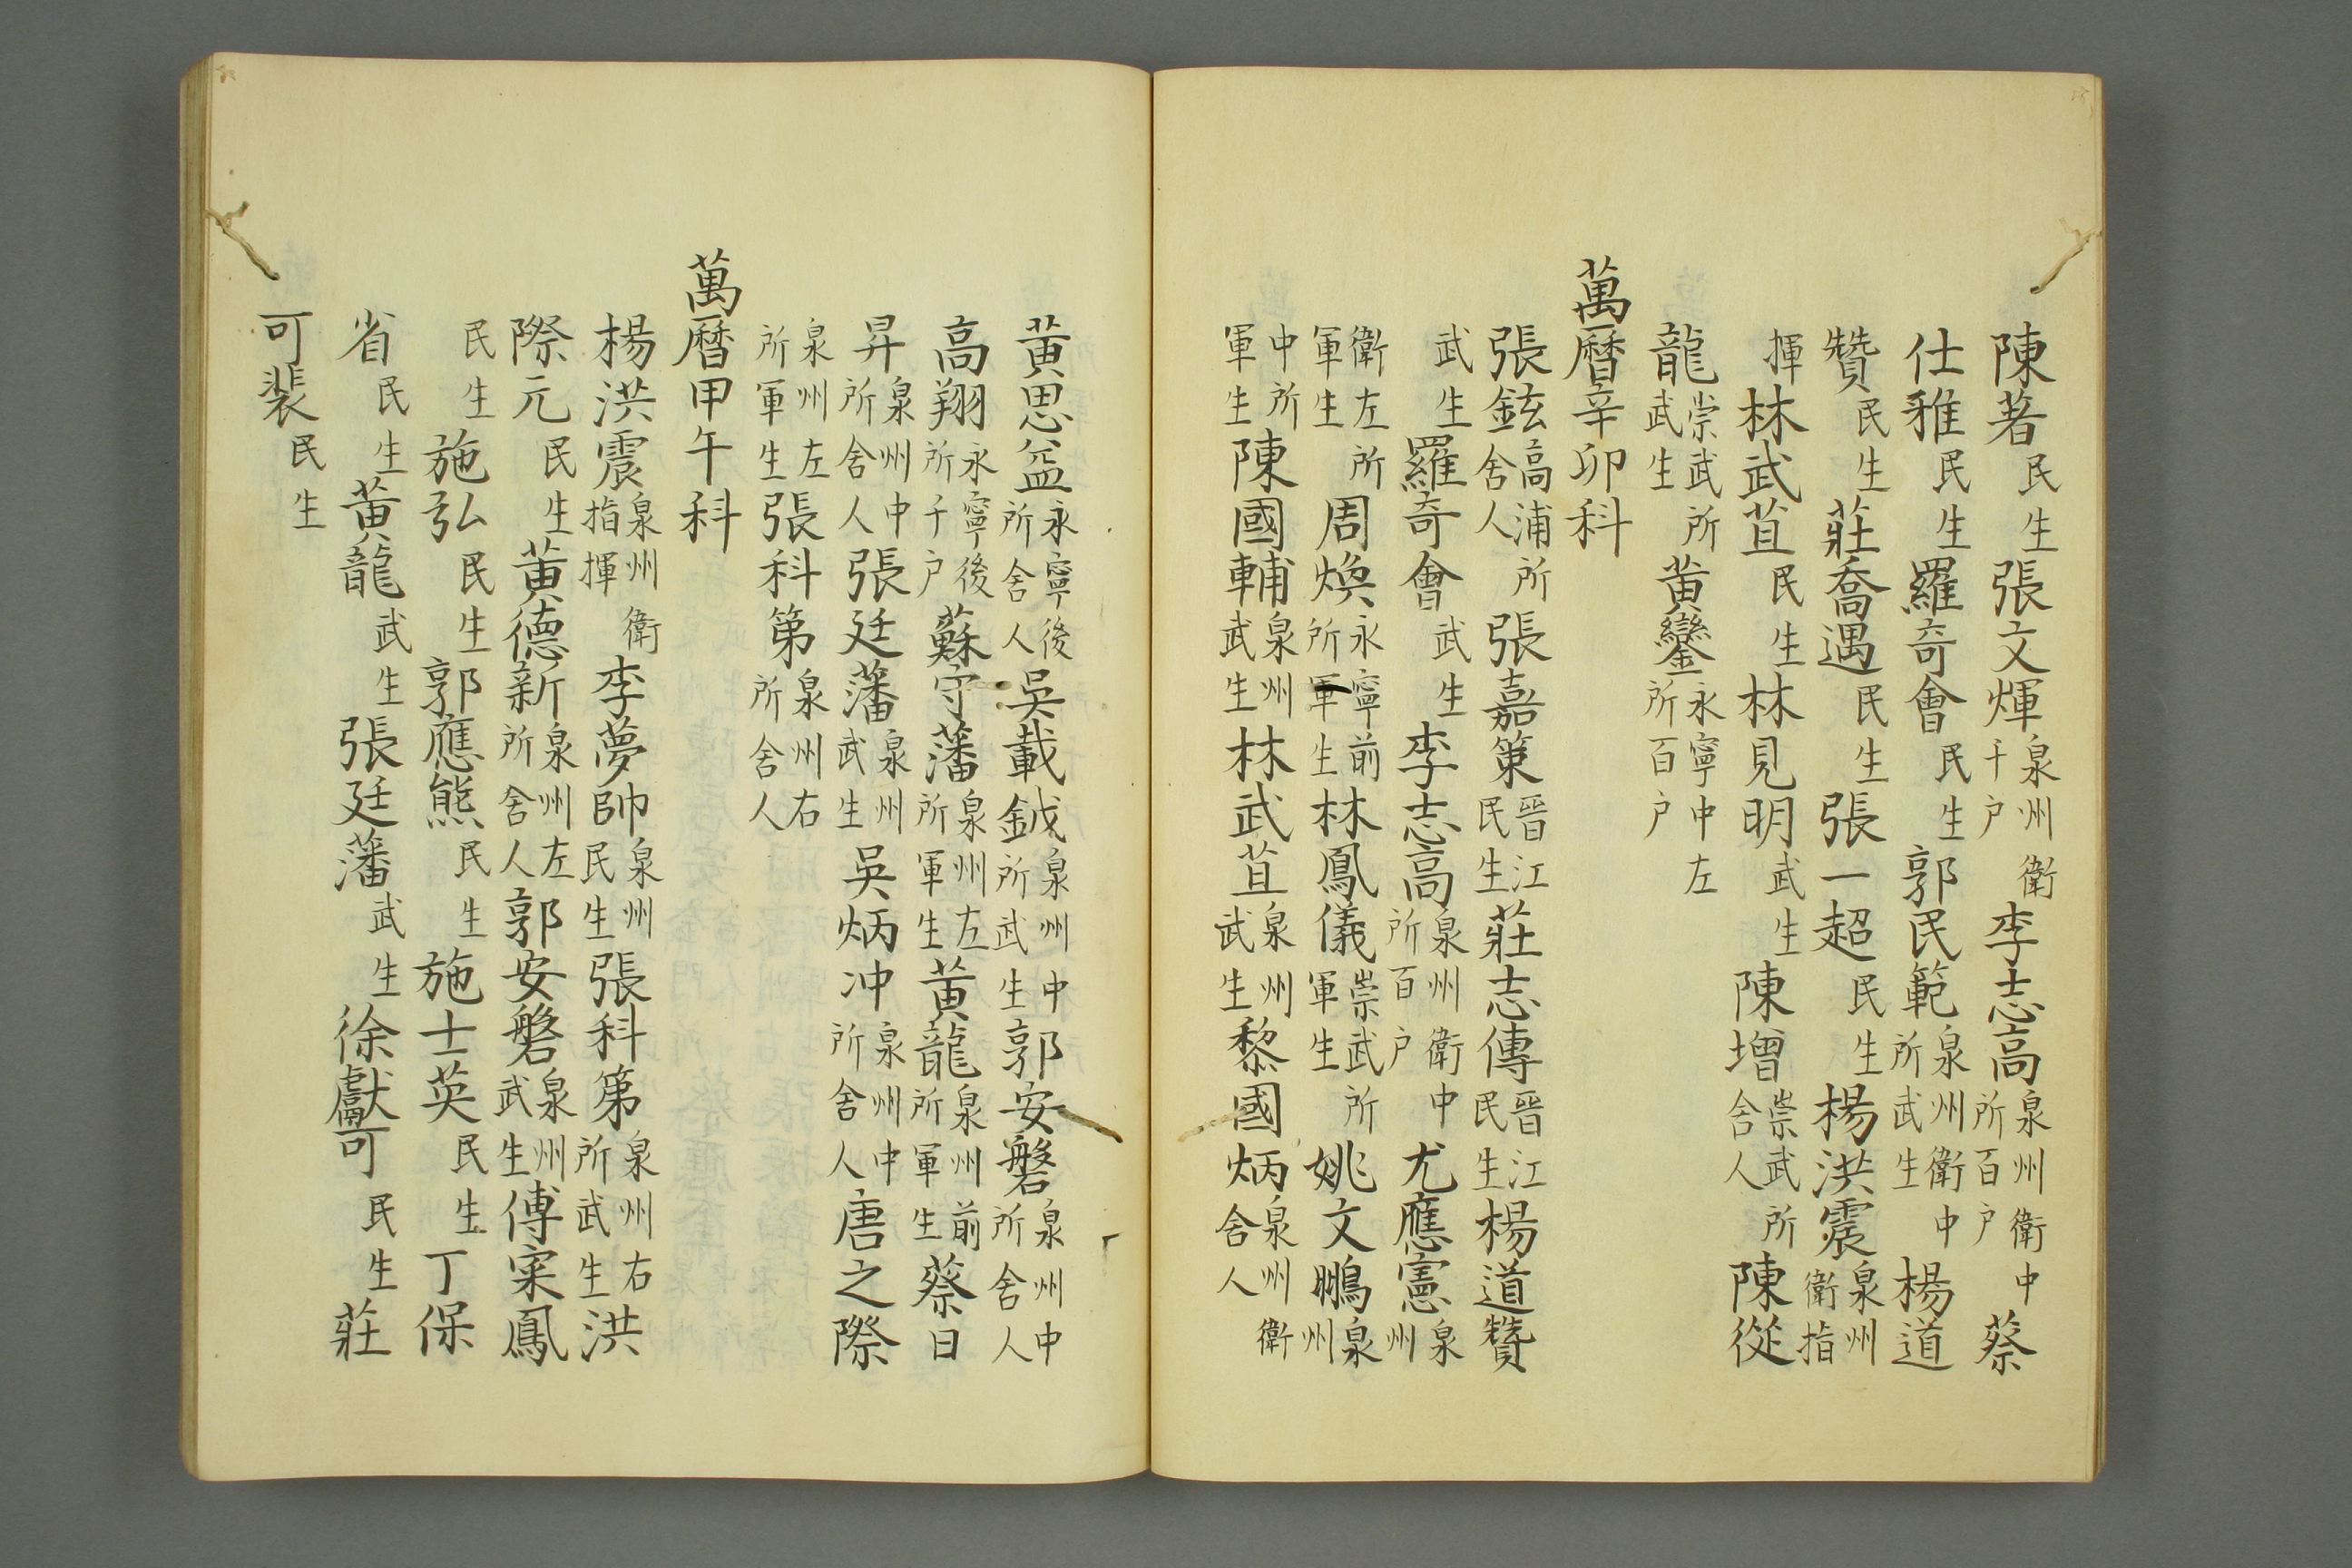 陳著民生張文煇泉州衛千户李志高泉州衛中所百户蔡
仕雅民生羅奇會民生郭民範泉州衛中所武生楊道
贊民生莊喬遇民生張一超民生楊洪震泉州衛指
揮林武苴民生林見明武生陳增崇武所舍人陳從
龍崇武所武生黄鑾永寧中左所百户
萬曆辛卯科
張鉉高浦所舍人張嘉策晉江民生莊志傳晉江民生楊道贊
武生羅奇會武生李志高泉州衛中所百户尤應憲泉州
衛左所軍生周煥永寧前所軍生林鳳儀崇武所軍生姚文鵬泉州
中所軍生陳國輔泉州武生林武苴泉州武生黎國炳泉州衛舍人
黄思盆永寧後所舍人吳載鉞泉州中所武生郭安磐泉州中所舍人
高翔永寧後所千户蘇守藩泉州左所軍生黄龍泉州前所軍生蔡日
昇泉州中所舍人張廷藩泉州武生吳炳冲泉州中所舍人唐之際
泉州左所軍生張科第泉州右所舍人
萬曆甲午科
楊洪震泉州衛指揮李夢帥泉州民生張科第泉州右所武生洪
際元民生黄德新泉州左所舍人郭安磐泉州武生傅寀鳳
民生施弘民生郭應熊民生施士英民生丁保
省民生黄龍武生張廷藩武生徐獻可民生莊
可裴民生